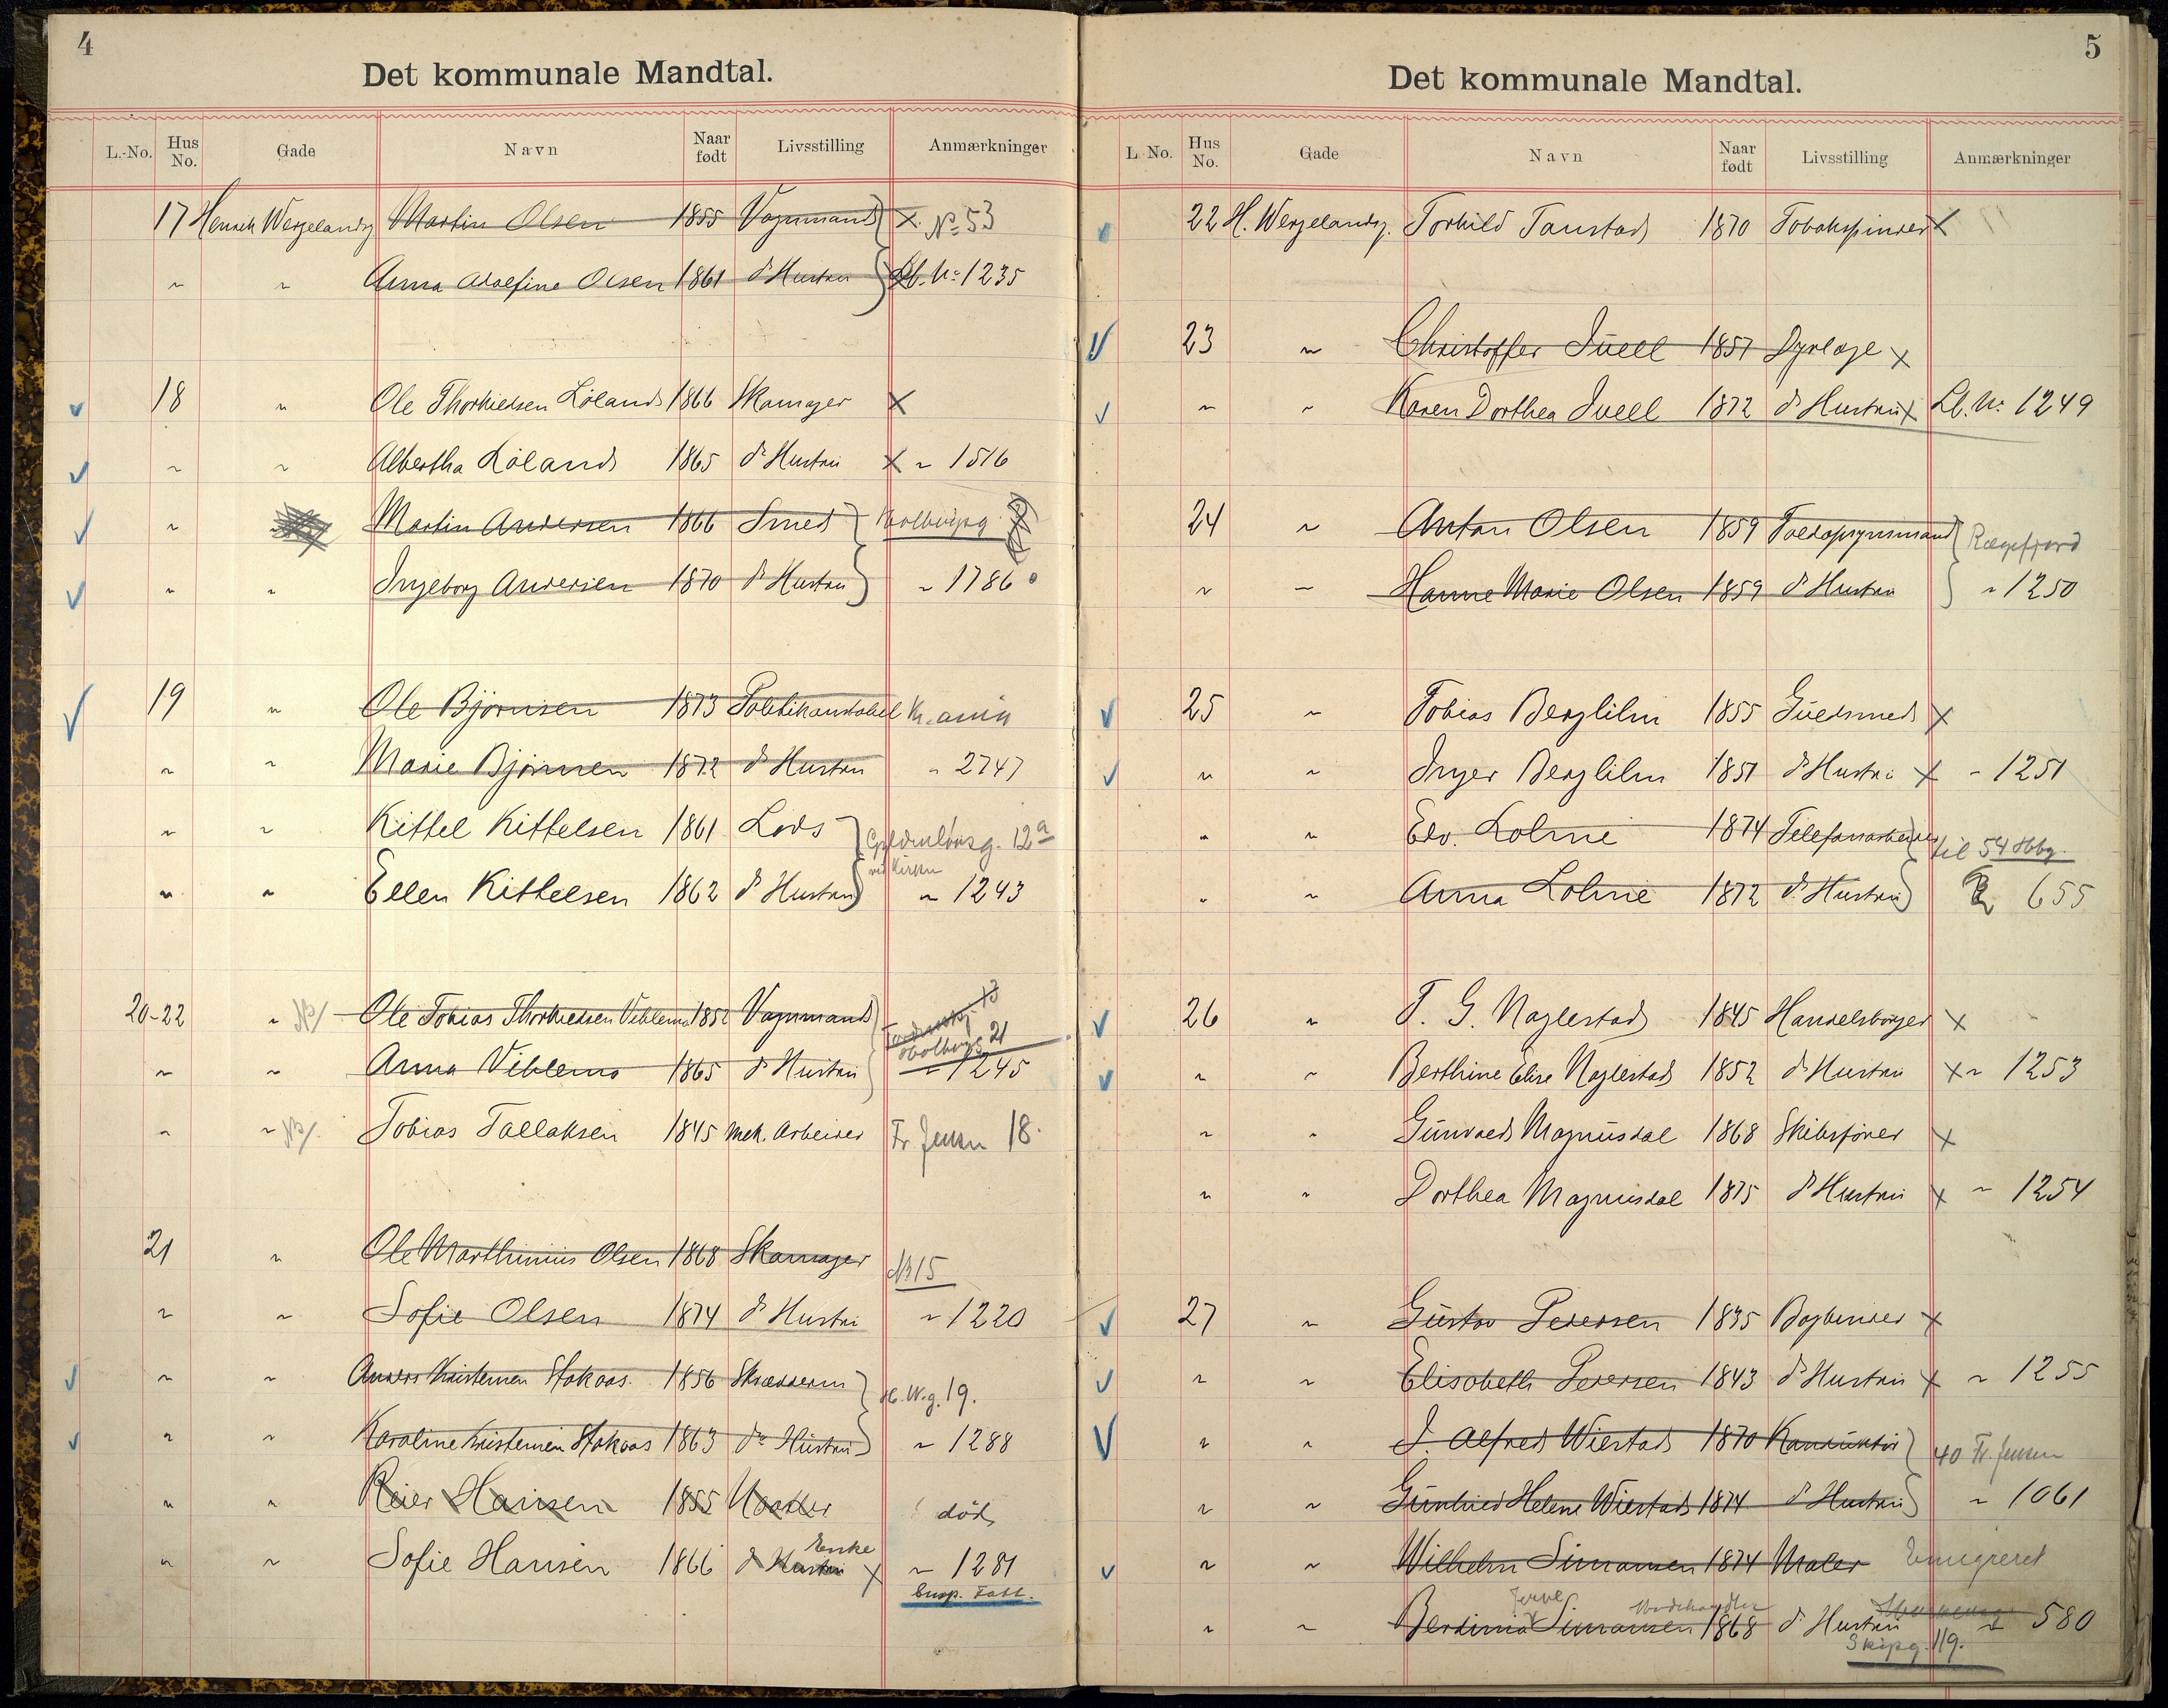 4
Det kommunale Mandtal.
L.-No. Hus No. Gade Navn Naar født Livsstilling Anmærkninger
17 Henrik Wergelandsg Martin Olsen 1855 Vognmand X. No 53
" " Anna Adolfine Olsen 1861 ds Hustru Lb. No 1235
18 " Ole Thorkildsen Löland 1866 Skomager X
" " Albertha Löland 1865 ds Hustru X " 1516
" Martin Andersen 1866 Smed Holbergsg.
" " Ingeborg Andersen 1870 ds Hustru " 1786
19 " Ole Björnsen 1873 Politikonstabel Kr.
" " Marie Björnsen 1872 ds Hustru " 2747
" " Kittel Kittelsen 1861 Lods Gyldenløvesg. 12a
ved Kirken
" " Ellen Kittelsen 1862 ds Hustru " 1243
20-22 " Ole Tobias Thorkildsen 1852 Vognmand 13
Holbergs 21
" " Anna 1865 ds Hustru " 1245
" " Tobias Tallaksen 1845 Mek. Arbeider Fr. Jensen 18.
21 " Ole Marthinius Olsen 1868 Skomager No 15
" " Sofie Olsen 1874 ds Hustru " 1220
" " Anders Kristensen Stokaas. 1856 H. W. g. 19.
" " Karoline Kristensen Stokaas 1863 ds Hustru " 1288
" " Reier Hansen 1855 død
" " Sofie Hansen 1866 ds Hustru Enke X " 1281
Susp. Fatt.
5
Det kommunale Mandtal.
L. No. Hus No. Gade Navn Naar født Livsstilling Anmærkninger
22 H. Wergelandsg. Torkild Tanstad 1870 Tobakspinder X
23 " Christoffer Juell 1857 Dyrlæge X
" " Karen Dorthea Juell 1872 ds Hustru X Lb. No 1249
24 " Anton Olsen 1859 Toldopsynsmand Rægefjord
" " Hanne Marie Olsen 1859 ds Hustru " 1250
25 " Tobias Berglihn 1855 Guldsmed X
" " Inger Berglihn 1851 ds Hustru X " 1251
" " Edv. Lohne 1874 Telefonarbeider til 54 Hbg.
" " Anna Lohne 1872 ds Hustru 655
26 " T. G. Naglestad 1845 Handelsborger X
" " Berthine Elise Naglestad 1852 ds Hustru X " 1253
" " Gunvald Magnusdal 1868 Skibsfører X
" " Dorthea Magnusdal 1875 ds Hustru X " 1254
27 " Gustav Pedersen 1835 Bogbinder X
" " Elisabeth Pedersen 1843 ds Hustru X " 1255
" " J. Alfred Wierstad 1870 Konduktør 40 Fr. Jensen
" " Gunhild Helene Wierstad 1874 ds Hustru " 1061
" " Wilhelm Simonsen 1874 Maler Emigreret
" " Berdinia Simonsen 1868 ds Hustru " 580
Skipg. 119.